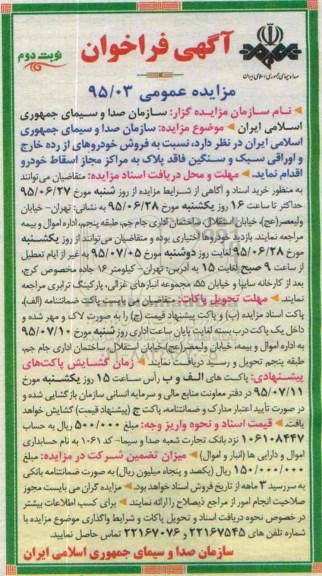 آگهی فراخوان
نوبت دوم
صدا و سیمای جمهوری اسلامی ایران
مزایده عمومی ۹۵/۰۳
نام سازمان مزایده گزار: سازمان صدا و سیمای جمهوری
اسلامی ایران موضوع مزایده: سازمان صدا و سیمای جمهوری
اسلامی ایران در نظر دارد، نسبت به فروش خودروهای از رده خارج
و اوراقی سبک و سنگین فاقد پلاک به مراکز مجاز اسقاط خودرو
اقدام نماید. مهلت و محل دریافت اسناد مزایده: متقاضیان می‌توانند
به منظور خرید اسناد و آگاهی از شرایط مزایده از روز شنبه مورخ ۹۵/۰۶/۲۷
حداکثر تا ساعت ۱۶ روز یکشنبه مورخ ۹۵/۰۶/۲۸ به نشانی: تهران- خیابان
ولیعصر(عج)، خیابان استقلال، ساختمان اداری جام جم، طبقه پنجم، اداره اموال و بیمه
مراجعه نمایند. بازدید خودروها اختیاری بوده و متقاضیان می‌توانند از روز یکشنبه
مورخ ۹۵/۰۶/۲۸ لغایت روز دوشنبه مورخ ۹۵/۰۷/۰۵ به غیر از ایام تعطیل
از ساعت ۹ صبح لغایت ۱۵ به آدرس: تهران- کیلومتر ۱۶ جاده مخصوص کرج،
بعد از کارخانه سایپا و خیابان ۵۵، مجموعه انبارهای غزالی، پارکینگ ترابری مراجعه
نمایند. مهلت تحویل پاکات: متقاضیان می بایست پاکت ضمانتنامه (الف)،
پاکت اسناد مزایده (ب) و پاکت پیشنهاد قیمت (ج) را به صورت لاک و مهر شده و
داخل یک پاکت درب بسته لغایت پایان ساعت اداری روز شنبه مورخ ۹۵/۰۷/۱۰
به اداره اموال و بیمه، خیابان ولیعصر(عج)، خیابان استقلال، ساختمان اداری جام جم،
طبقه پنجم تحویل و رسید دریافت نمایند. زمان گشایش پاکت‌های
پیشنهادی: پاکت های الف و ب رأس ساعت ۱۵ روز یکشنبه مورخ
۹۵/۰۷/۱۱ در دفتر معاونت منابع مالی و سرمایه انسانی سازمان بازگشایی شده و
در صورت تأیید اعتبار مدارک و ضمانتنامه، پاکت ج (پیشنهاد قیمت) گشایش خواهد
یافت. قیمت اسناد و نحوه واریز وجه: مبلغ ۵۰۰/۰۰۰ ریال به حساب
۱۰۶۱۰۸۴۴۷ نزد بانک تجارت شعبه صدا و سیما- کد ۱۰۶۱ به نام حسابداری
اموال و دارایی ها (انبار و اموال) میزان تضمین شرکت در مزایده: مبلغ
۱۵۰/۰۰۰/۰۰۰ ریال (یکصد و پنجاه میلیون ریال) به صورت ضمانتنامه بانکی
به سررسید ۳ ماهه از تاریخ فروش اسناد خواهد بود. مزایده گران می بایست مجوز
صلاحیت انجام امور از مراجع ذیصلاح را ارائه نمایند. برای کسب اطلاعات بیشتر
در خصوص نحوه دریافت اسناد و تحویل پاکات و شرایط واگذاری موضوع مزایده با
شماره تلفن های ۲۲۱۶۷۵۴۵ و ۲۲۱۶۷۰۷۶ تماس حاصل نمایید.
سازمان صدا و سیمای جمهوری اسلامی ایران